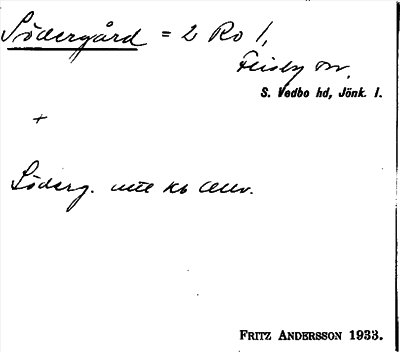 Södergård = 2 Ro 1,
Flisby sn.
S. Vedbo hd, Jönk. l.
+
Söderg. utt
FRITZ ANDERSSON 1933.